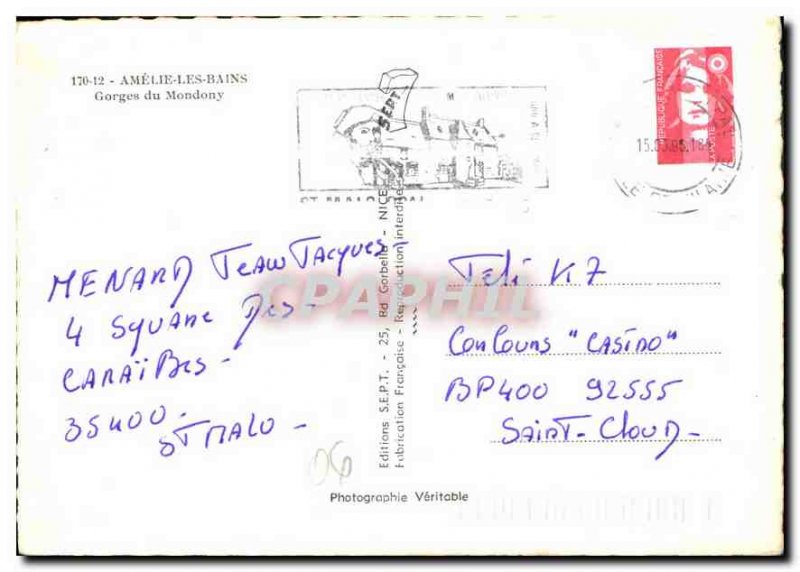 170-12 - AMÉLIE-LES-BAINS
Gorges du Mondony
SEPT
RÉPUBLIQUE FRANÇAISE
MENARD JEAN JACQUES -
4 SQUARE DES -
CARAÏBES -
35400 -
ST MALO -
Editions S.E.P.T. - 25, Rd Gorbella - NICE
Fabrication Française - Reproduction interdite
CPAPHIL
Télé K7
Concours "CASINO"
BP400 92555
SAINT-CLOUD -
06
Photographie Véritable